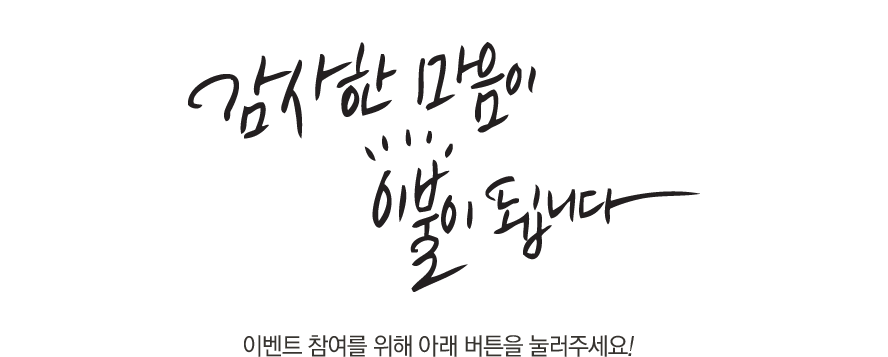 감사한 마음이
이불이 됩니다
이벤트 참여를 위해 아래 버튼을 눌러주세요!